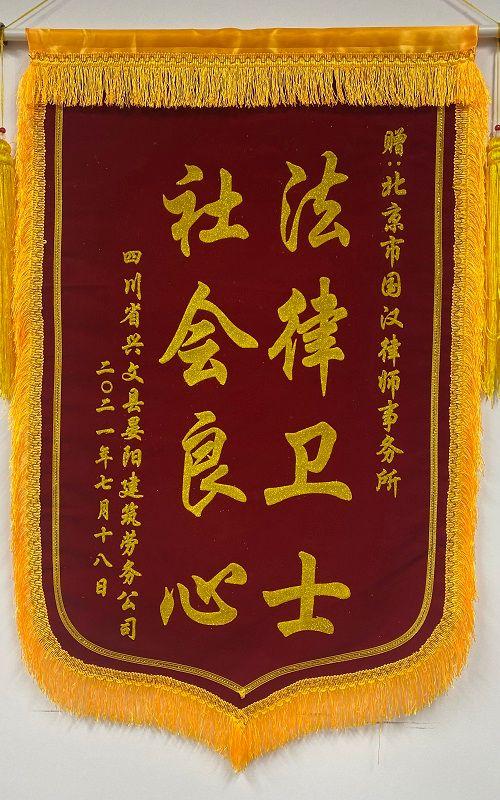 赠:北京市国汉律师事务所
法律卫士
社会良心
四川省兴文县晏阳建筑劳务公司
二〇二一年七月十八日